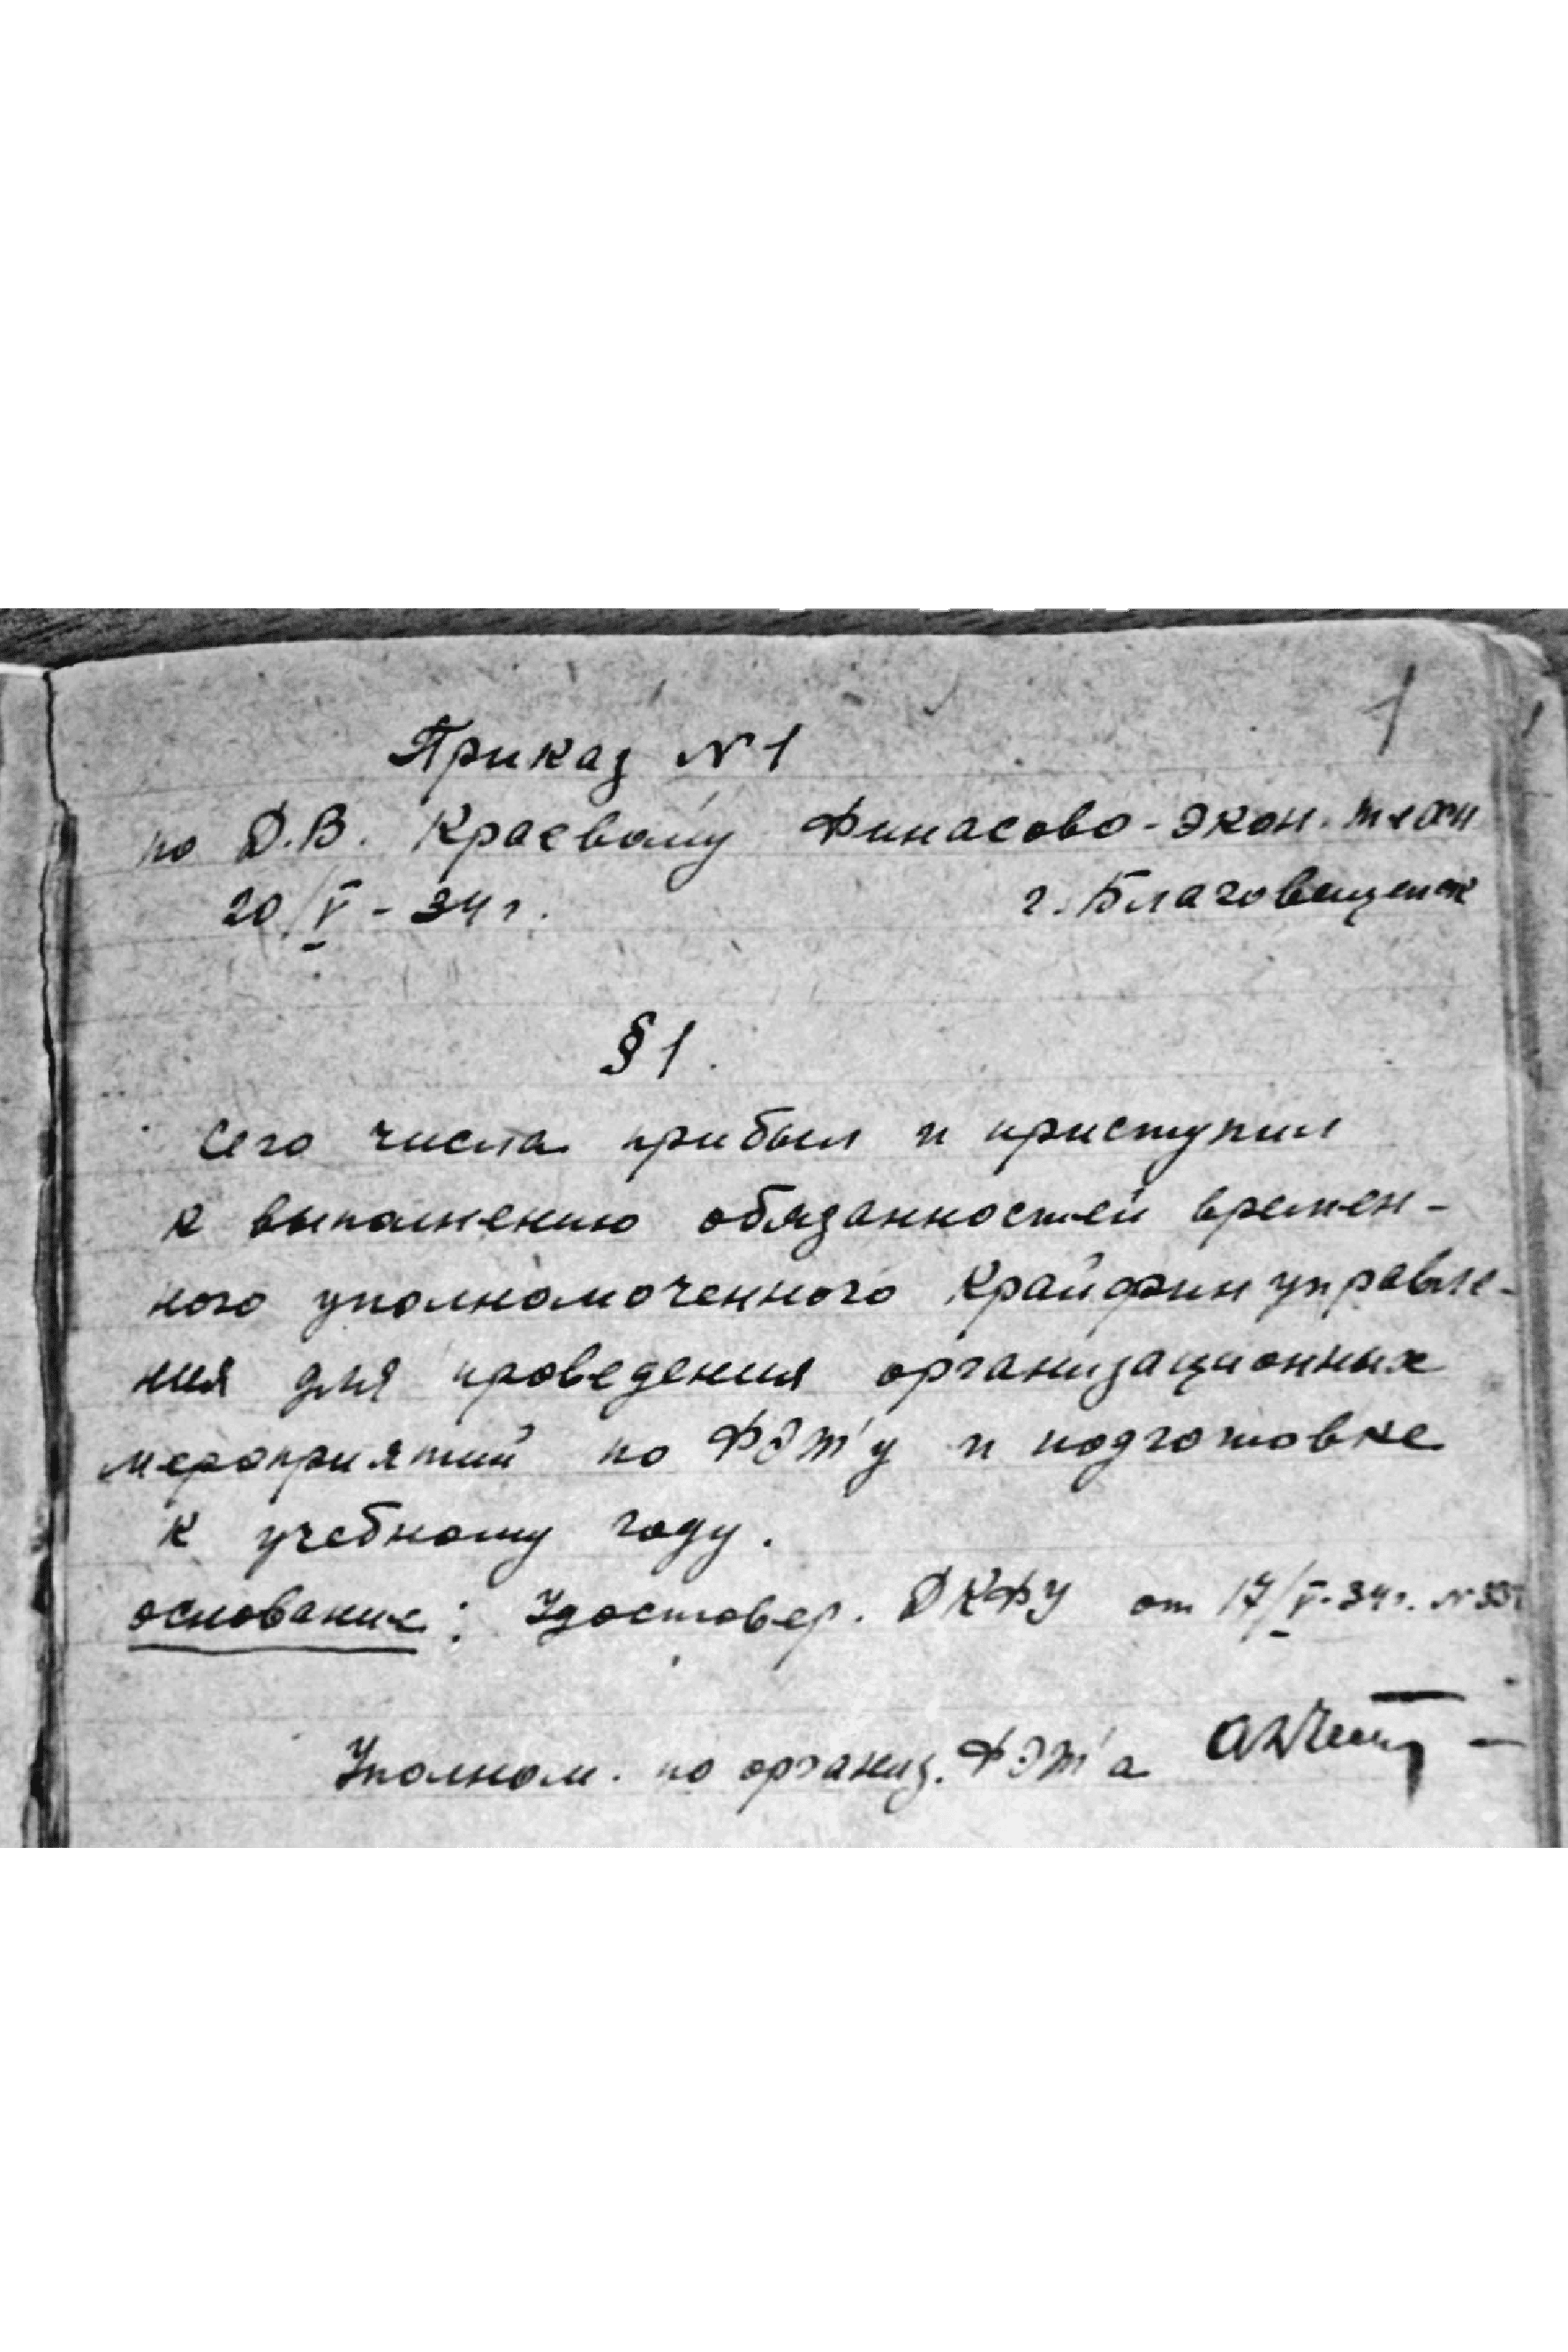 1
Приказ № 1
по Д.В. Краевому Финасово-экон. техн
20/V - 34 г. г. Благовещенск
§ 1.
Сего числа прибыл и приступил
к выполнению обязанностей времен-
ного уполномоченного Крайфинуправле-
ния для проведения организационных
мероприятий по ФЭТ'у и подготовке
к учебному году.
основание: Удостовер. ДКФУ от 17/V-34 г. №
Уполном. по организ. ФЭТ'а